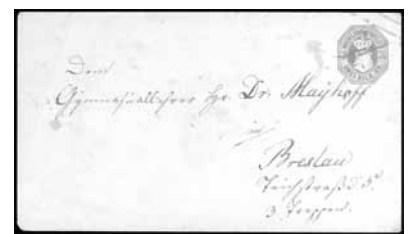 Dem
Gymnasiallehrer Hr. Dr. Mayhoff
in
Breslau
Teichstraße 3.
3 Treppen.